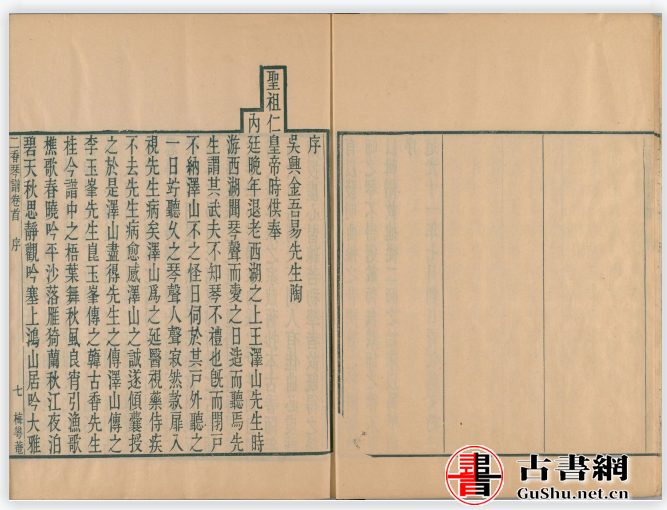 序
吳興金吾易先生陶
聖祖仁皇帝時供奉
內廷晚年退老西湖之上王澤山先生時
游西湖聞琴聲而愛之日造而聽焉先
生謂其武夫不知琴不禮也旣而閉戶
不納澤山不之怪日伺於其戶外聽之
一日竚聽久之琴聲人聲寂然款扉入
視先生病矣澤山爲之延醫視藥侍疾
不去先生病愈感澤山之誠遂傾囊授
之於是澤山盡得先生之傳澤山傳之
李玉峯先生崑玉峯傳之韓古香先生
桂今譜中之梧葉舞秋風良宵引漁歌
樵歌春曉吟平沙落雁猗蘭秋江夜泊
碧天秋思靜觀吟塞上鴻山居吟大雅
二香琴譜卷首 序 七 梅花菴
書 古書網
GuShu.net.cn